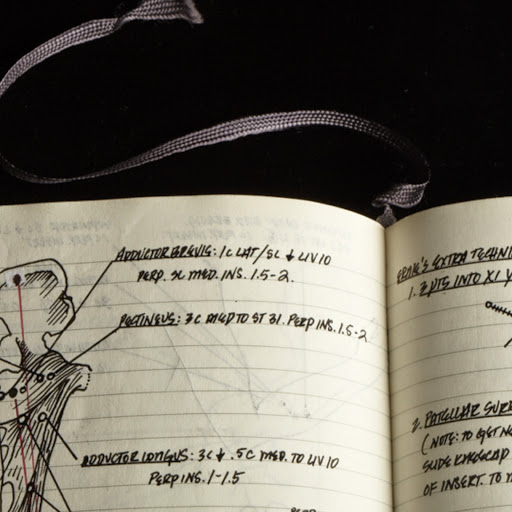 ADDUCTOR BREVIS: 1C LAT/5C ↓ LIV10
PERP. MED. INS. 1.5-2.
PECTINEUS: 3C MED TO ST 31. PERP INS. 1.5-2
ADDUCTOR LONGUS: 3C ↓ .5C MED. TO LIV10
PERP INS. 1-1.5
EXTRA TECHNI
1. 3 PTS INTO XI
2. PATELLAR SUR
(NOTE: TO
SLIDE KNEECAP
OF INSERT. TO